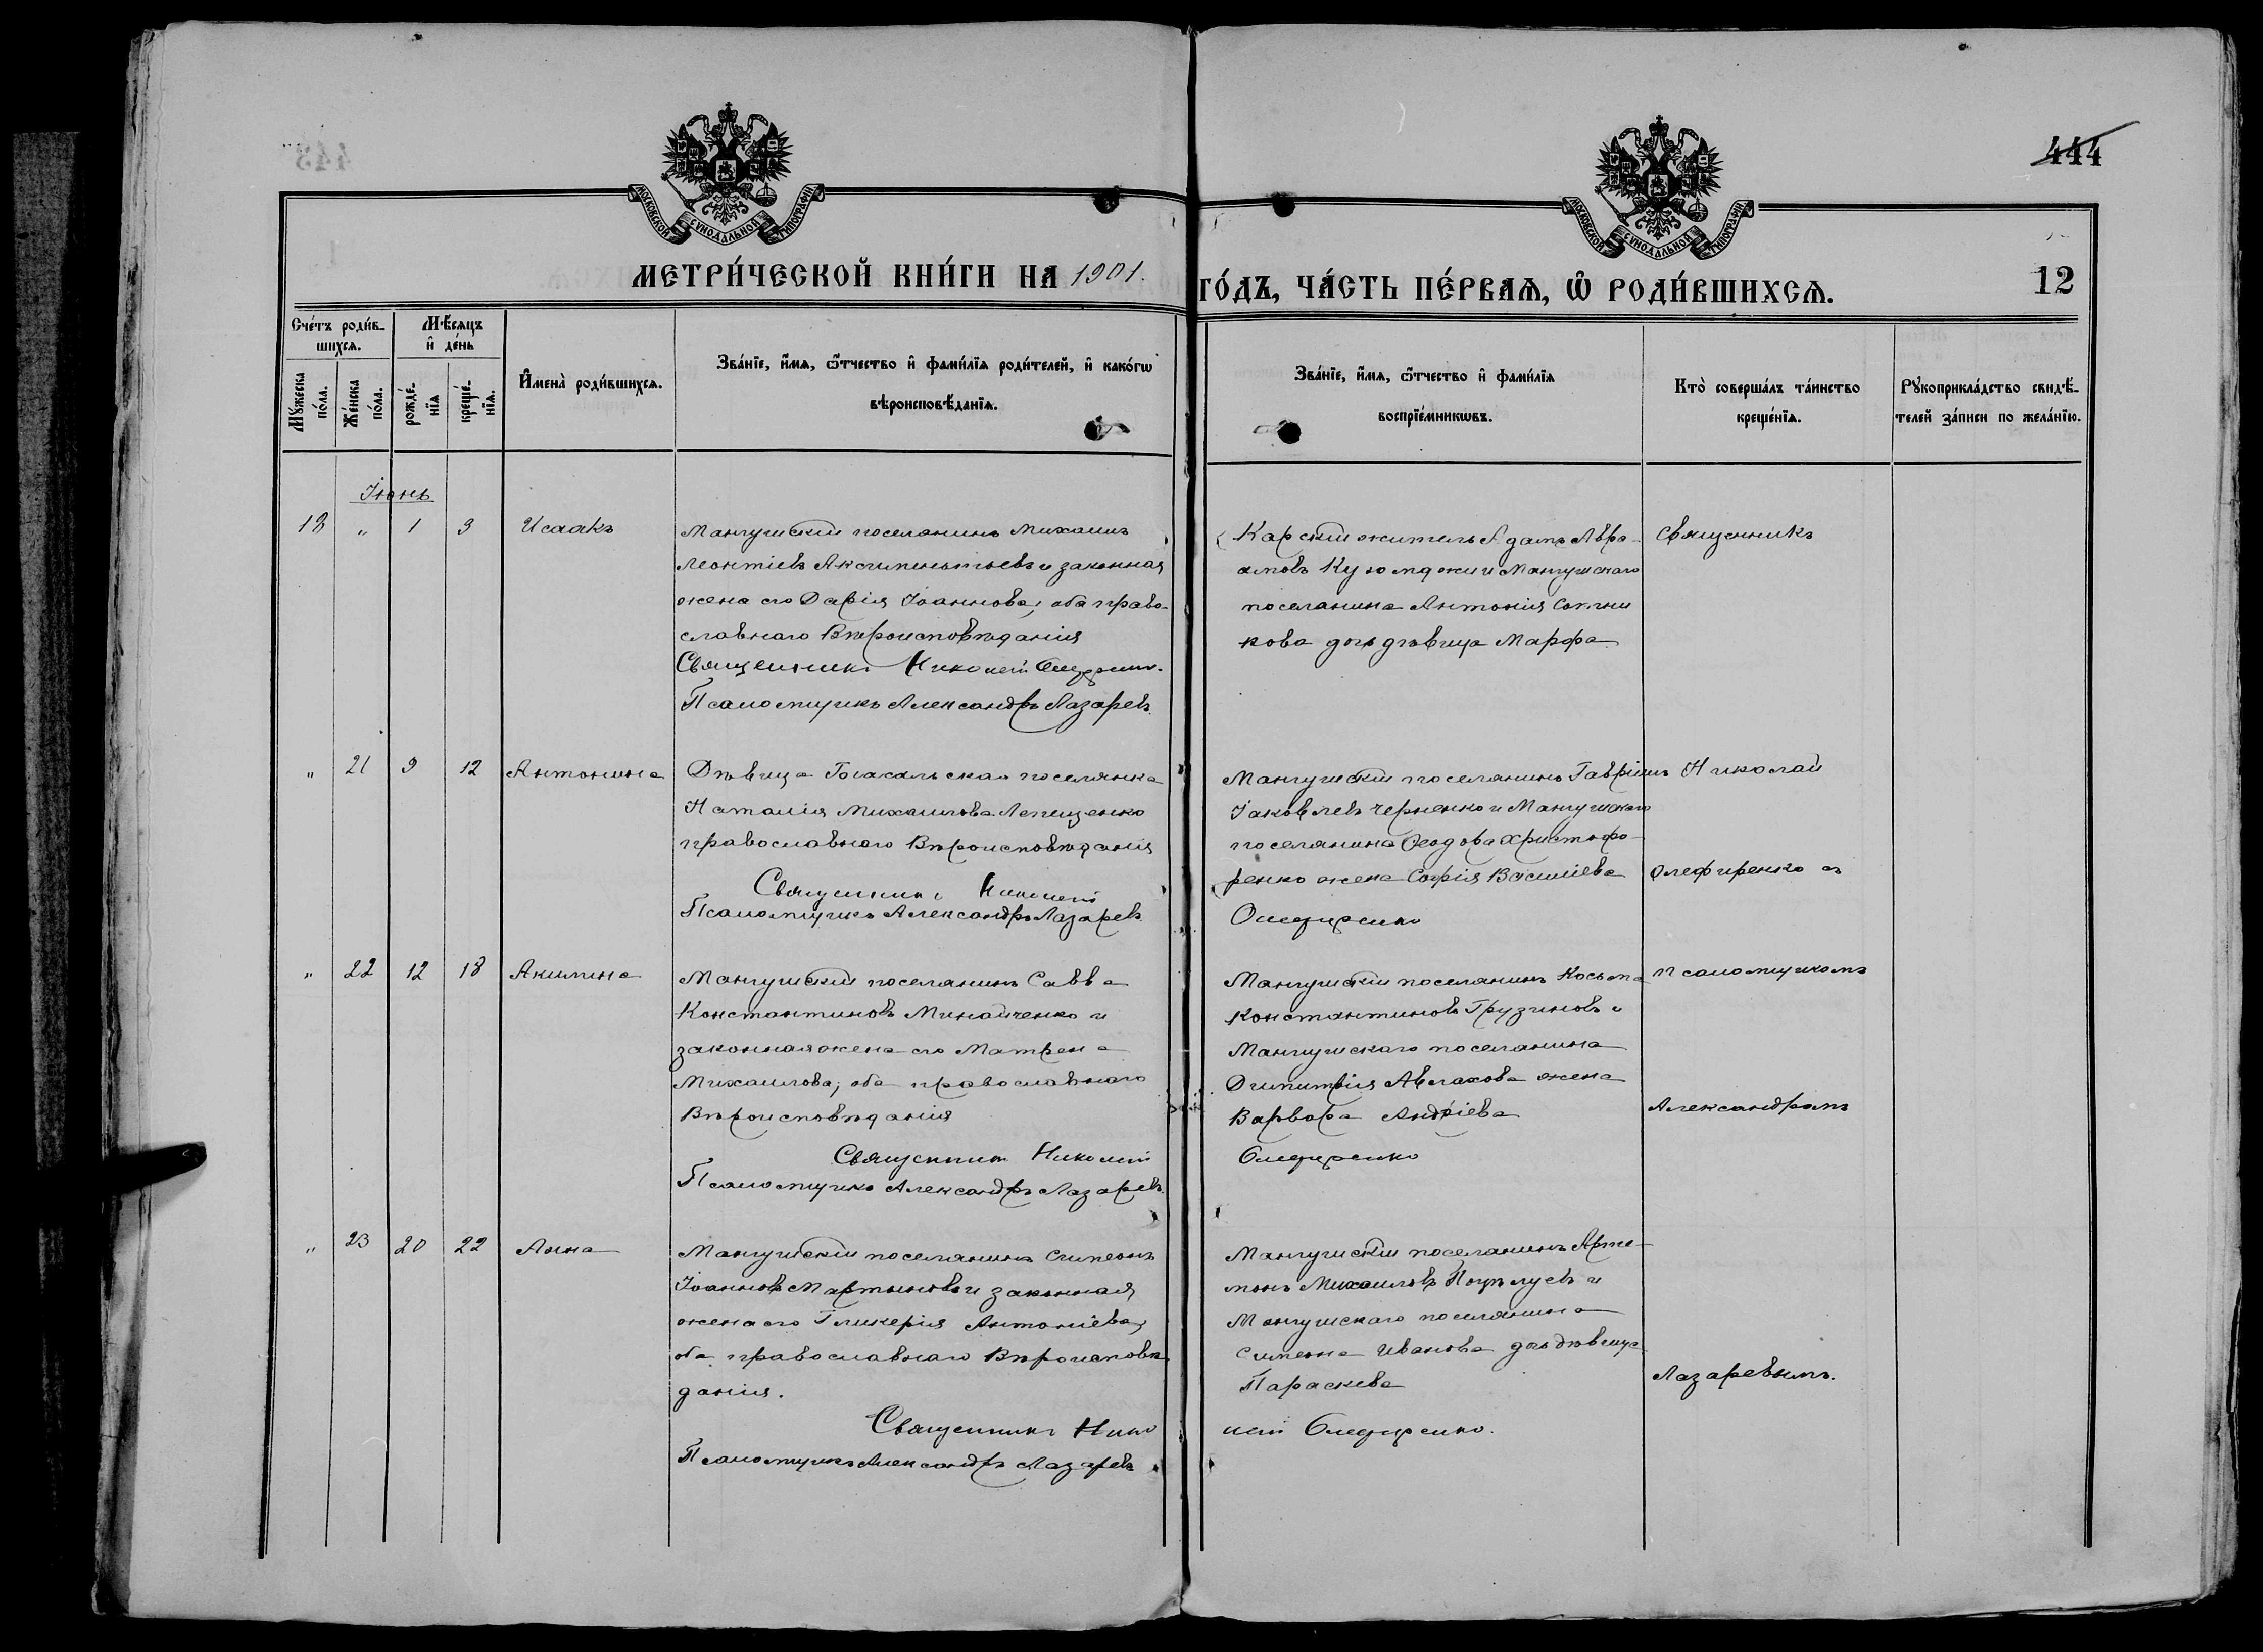 444
МОСКОВСКОЙ СѴНОДАЛЬНОЙ ТИПОГРАФІИ
МОСКОВСКОЙ СѴНОДАЛЬНОЙ ТИПОГРАФІИ
МЕТРИ́ЧЕСКОЙ КНИ́ГИ НА 1901.
ГО́ДЪ, ЧА́СТЬ ПЕ́РВАѦ, Ѡ҆ РОДИ́ВШИХСѦ.
12
Сче́тъ роди́в-
шихсѧ.
Мѣ́сѧцъ
и҆ де́нь
Мꙋ́жеска
по́ла.
Же́нска
по́ла.
рожде́-
нїѧ
креще́-
нїѧ.
И҆мена̀ роди́вшихсѧ.
Зва́нїе, и҆́мѧ, ѻ҆́тчество и҆ фами́лїѧ роди́телей, и҆ како́гѡ
вѣроисповѣ́данїѧ.
Зва́нїе, и҆́мѧ, ѻ҆́тчество и҆ фами́лїѧ
воспрїе́мникѡвъ.
Кто̀ соверша́лъ та́инство
креще́нїѧ.
Рꙋкоприкла́дство свидѣ́-
телей за́писи по жела́нїю.
Іюнь
18 " 1 3 Исаакъ
Мангушскій поселянинъ Михаилъ
Леонтіевъ и законная
жена его Дарія Іоаннова, оба право-
славнаго Вѣроисповѣданія
Священникъ Николай Олефиренко
Псаломщикъ Александръ Лазаревъ
Карскій житель Адамъ Авра-
амовъ и Мангушскаго
поселянина Антонія Сотни
кова дочь дѣвица Марфа
Священникъ
" 21 9 12 Антонина
Дѣвица поселянка
Наталія Михаилова Лепещенко
православнаго Вѣроисповѣданія
Священникъ Николай
Псаломщикъ Александръ Лазаревъ
Мангушскій поселянинъ Гавріилъ
Іаковлевъ Черненко и Мангушскаго
поселянина Ѳеодора Христофо-
ренко жена Софія Василіева
Олефиренко
Николай
Олефиренко съ
" 22 12 18 Акилина
Мангушскій поселянинъ Савва
Константиновъ Минайченко и
законная жена его Матрена
Михаилова, оба православнаго
Вѣроисповѣданія
Священникъ Николай
Псаломщикъ Александръ Лазаревъ
Мангушскій поселянинъ Косьма
Константиновъ Грузиновъ и
Мангушскаго поселянина
Димитрія Авлахова жена
Варвара Андріева
Олефиренко
псаломщикомъ
Александромъ
" 23 20 22 Анна
Мангушскій поселянинъ Симеонъ
Іоанновъ Мартыновъ и законная
жена его Гликерія Антоніева,
оба православнаго Вѣроисповѣ
данія.
Священникъ Нико
Псаломщикъ Александръ Лазаревъ
Мангушскій поселянинъ Арте-
монъ Михаиловъ Поцѣлуевъ и
Мангушскаго поселянина
Симеона Иванова дочь дѣвица
Параскева
лай Олефиренко.
Лазаревымъ.